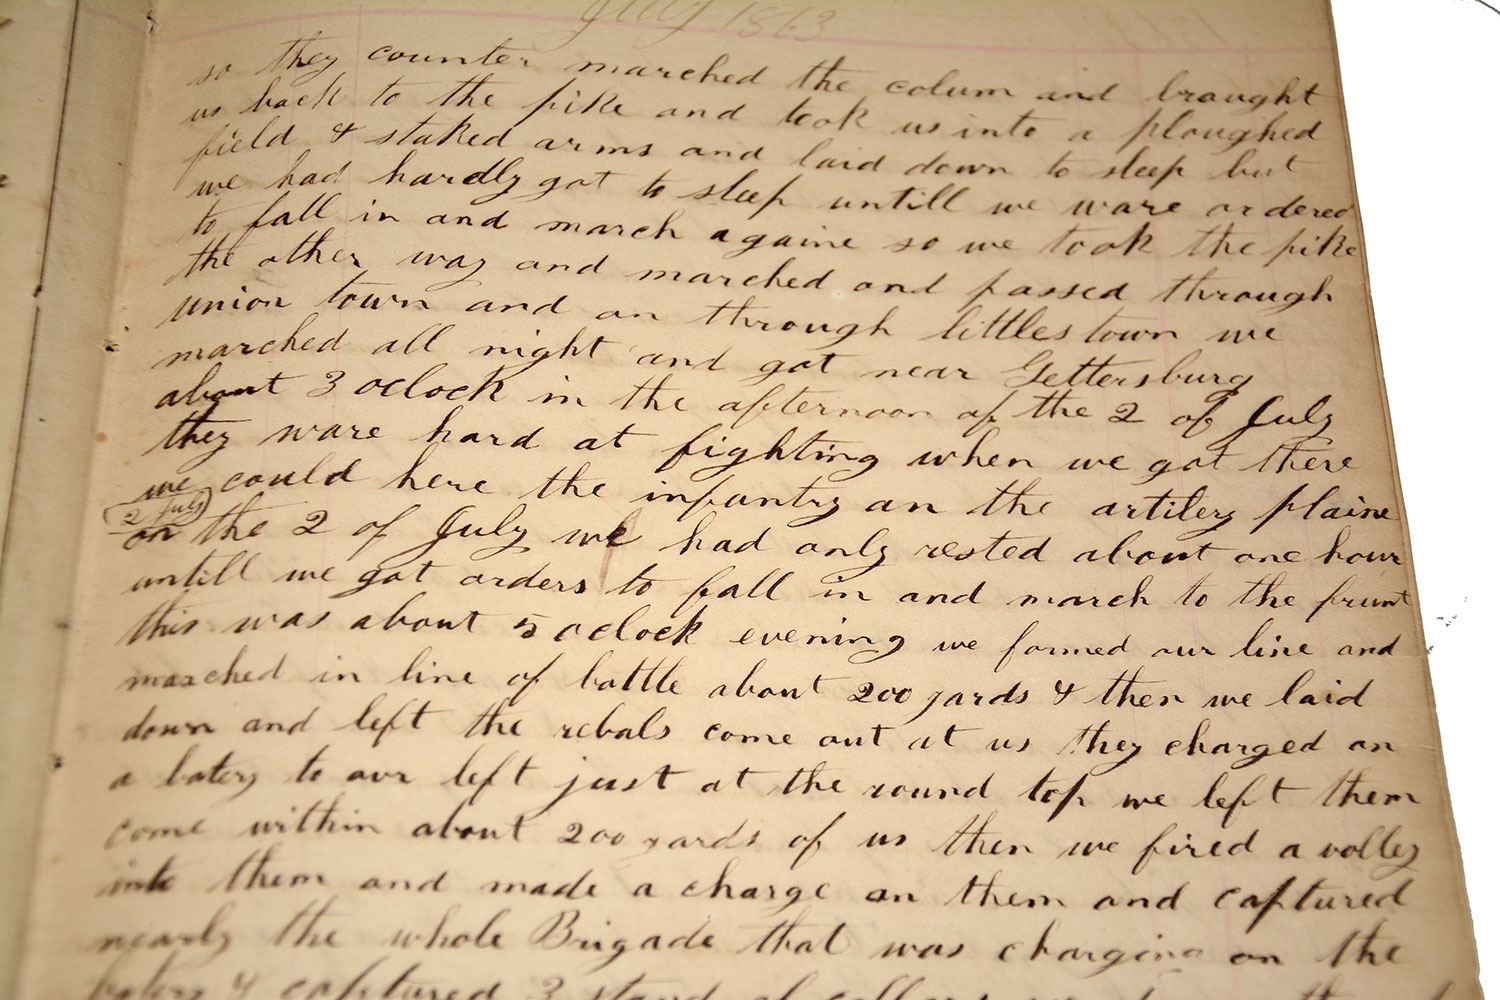 July 1863
so they counter marched the colum and braught
us back to the pike and took us into a ploughed
field & staked arms and laid down to sleep but
we had hardly got to sleep untill we ware ordered
to fall in and march againe so we took the pike
the other way and marched and passed through
union town and on through littlestown we
marched all night and got near Gettersburg
about 3 oclock in the afternoon of the 2 of July
they ware hard at fighting when we got there
we could here the infantry an the artilery plaine
2 July
on the 2 of July we had only rested about one hour
untill we got orders to fall in and march to the frunt
this was about 5 oclock evening we formed our line and
marched in line of battle about 200 yards & then we laid
down and left the rebals come out at us they charged on
a batery to our left just at the round top we left them
come within about 200 yards of us then we fired a volley
into them and made a charge on them and captured
nearly the whole Brigade that was charging on the
batery & captured 3 stand of collars